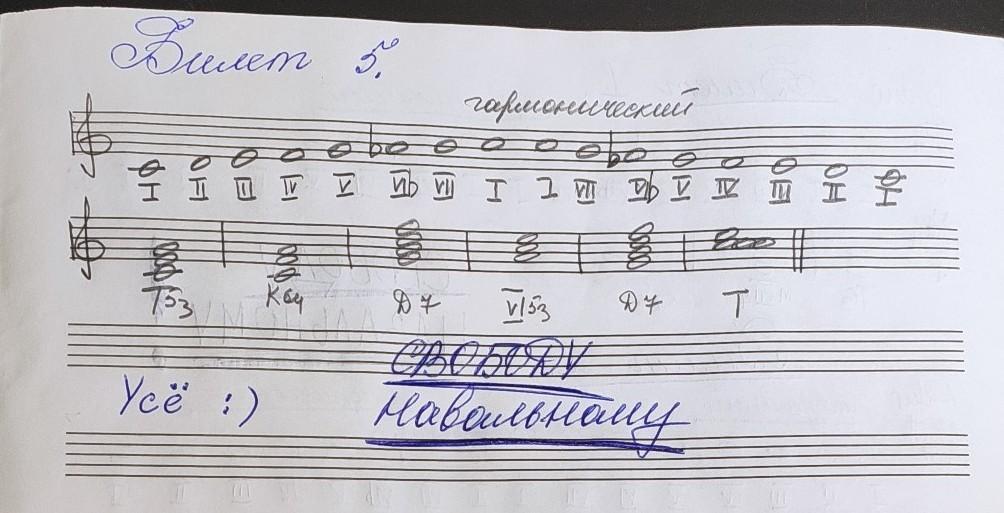 Билет 5.
гармонический
I II III IV V VI♭ VII I I VII VI♭ V IV III II I
T53 K64 D7 VI53 D7 T
СВОБОДУ
Усё :) Навальному